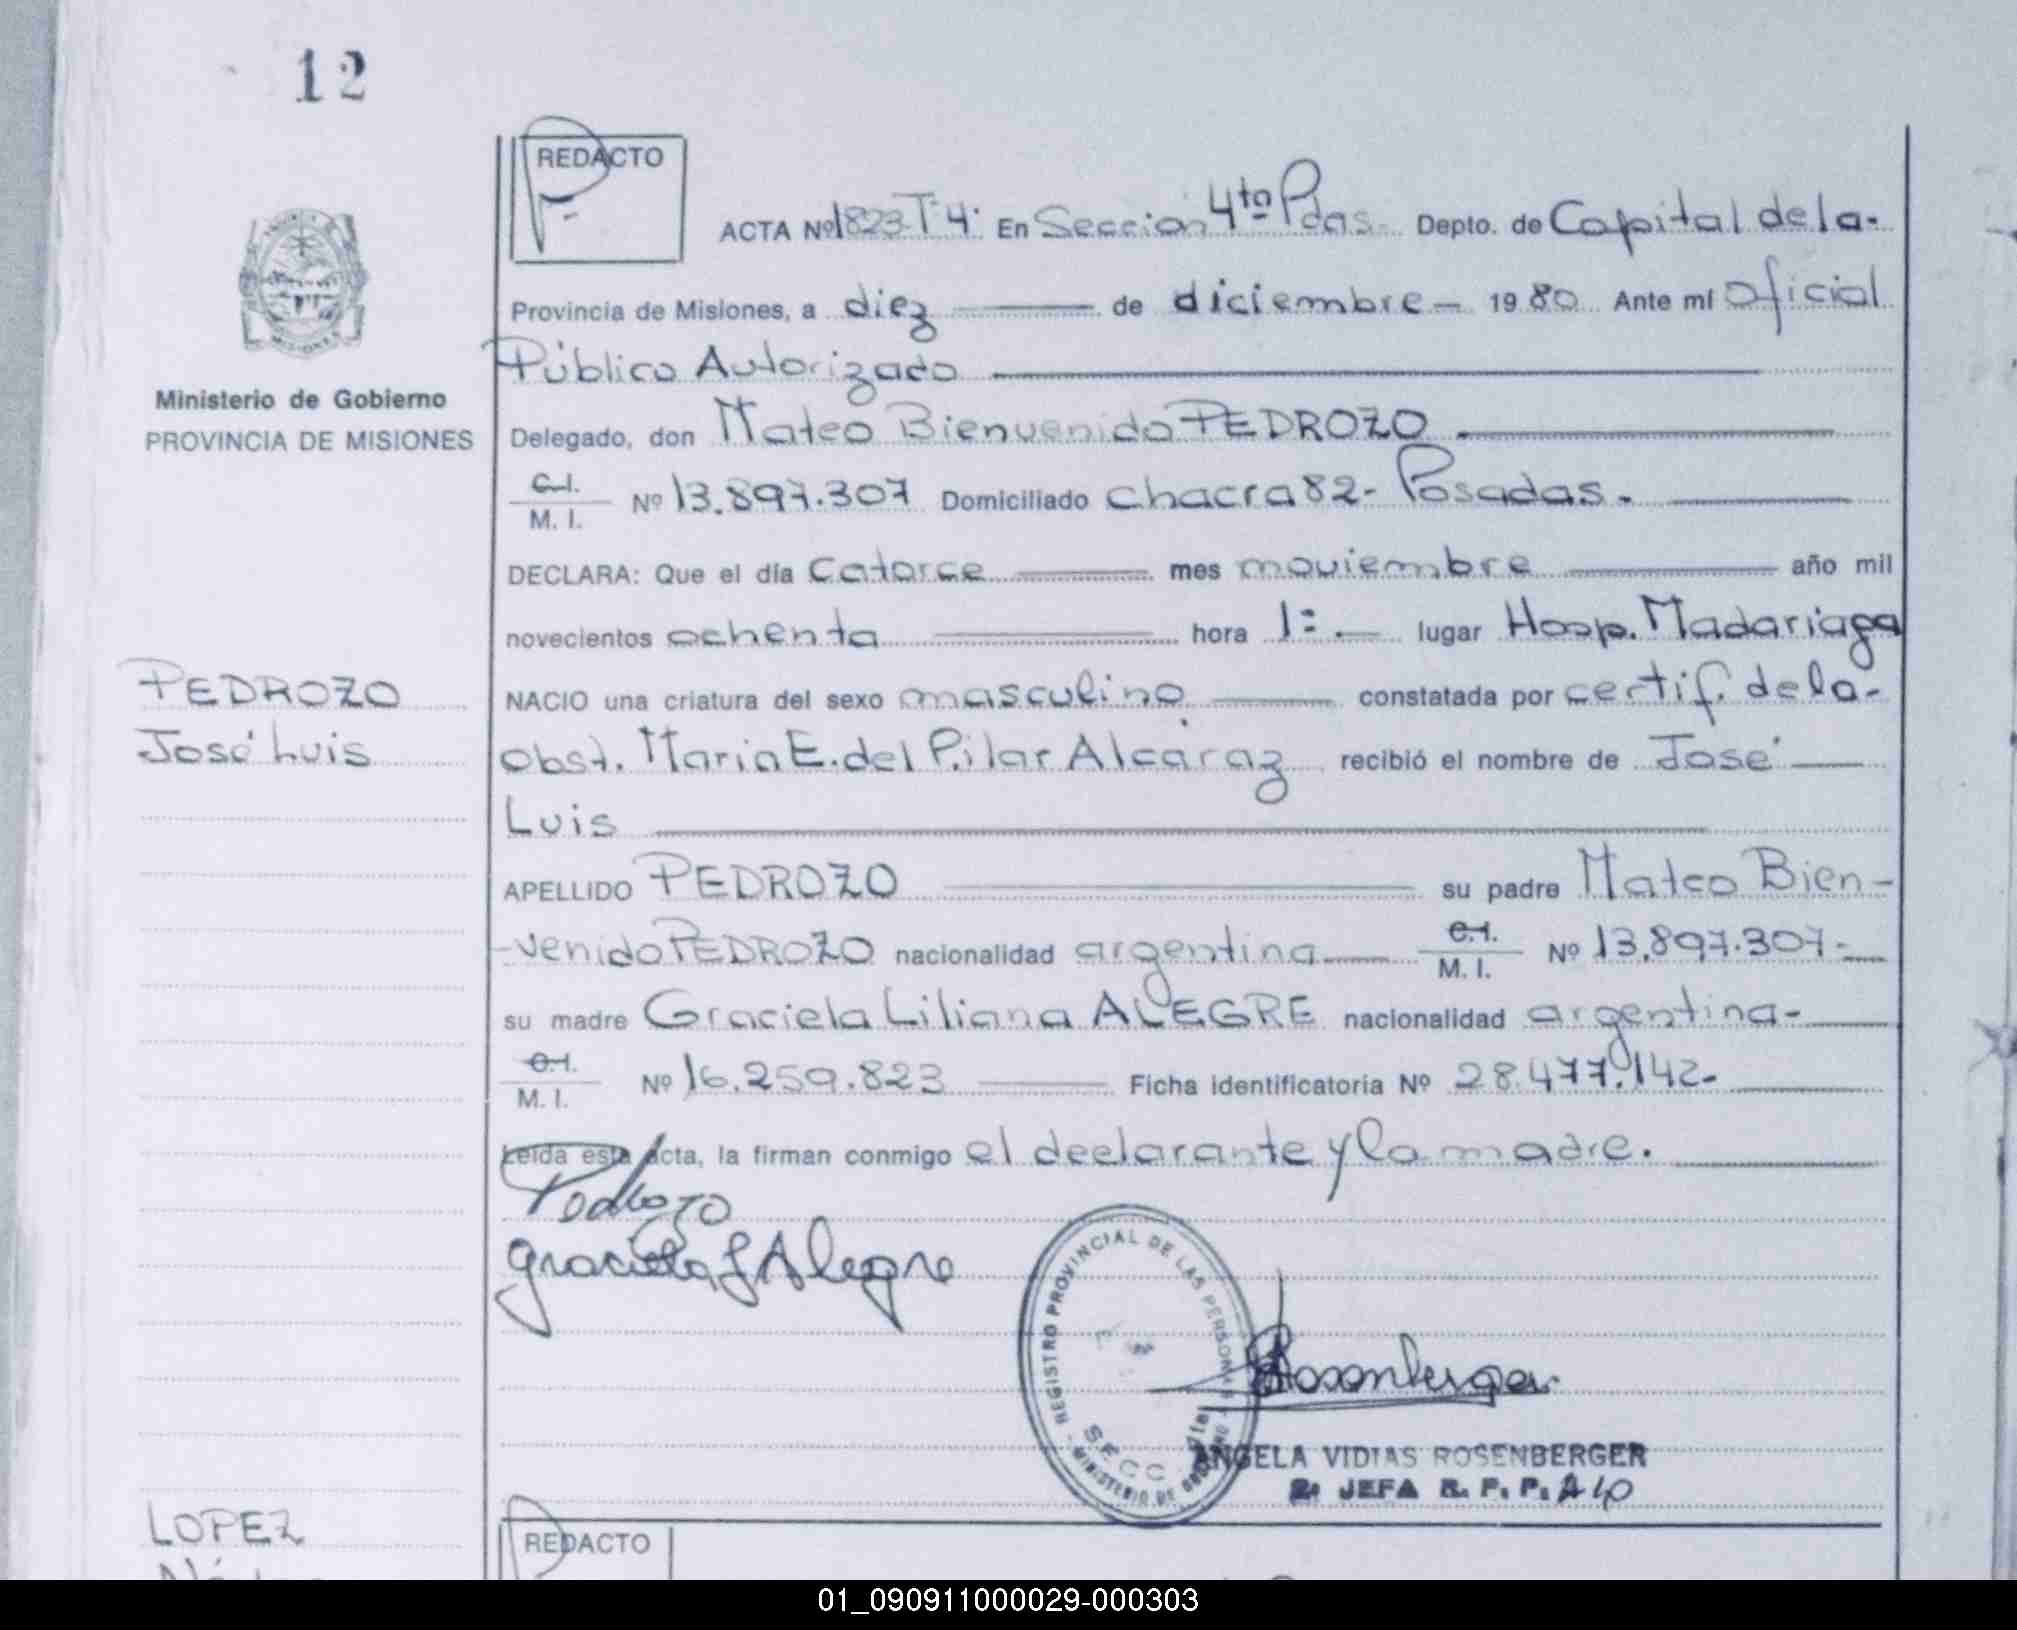 12
REDACTO
ACTA Nº 1823-T 4· En Seccion 4ta Pdas. Depto. de Capital de la-
Provincia de Misiones, a diez de diciembre - 1980 Ante mí Oficial
Público Autorizado
Ministerio de Gobierno
PROVINCIA DE MISIONES
Delegado, don Mateo Bienvenido PEDROZO
C.I.
M. I. Nº 13.897.307 Domiciliado Chacra 82- Posadas.
DECLARA: Que el día Catorce mes noviembre año mil
novecientos ochenta hora 1: lugar Hosp. Madariaga
PEDROZO
José Luis
NACIO una criatura del sexo masculino constatada por certif. de la-
obst. Maria E. del Pilar Alcáraz recibió el nombre de José
Luis
APELLIDO PEDROZO su padre Mateo Bien-
-venido PEDROZO nacionalidad argentina C.I.
M. I. Nº 13.897.307-
su madre Graciela Liliana ALEGRE nacionalidad argentina-
C.I.
M. I. Nº 16.259.823 Ficha identificatoria Nº 28.477.142-
Leída esta acta, la firman conmigo el declarante y la madre.
Pedrozo
Graciela L Alegre
REGISTRO PROVINCIAL DE LAS PERSONAS
SECC. 4ta
- MINISTERIO DE GOBIERNO -
Rosenberger
ANGELA VIDIAS ROSENBERGER
2ª JEFA R. P. P.
LOPEZ
REDACTO
01_090911000029-000303